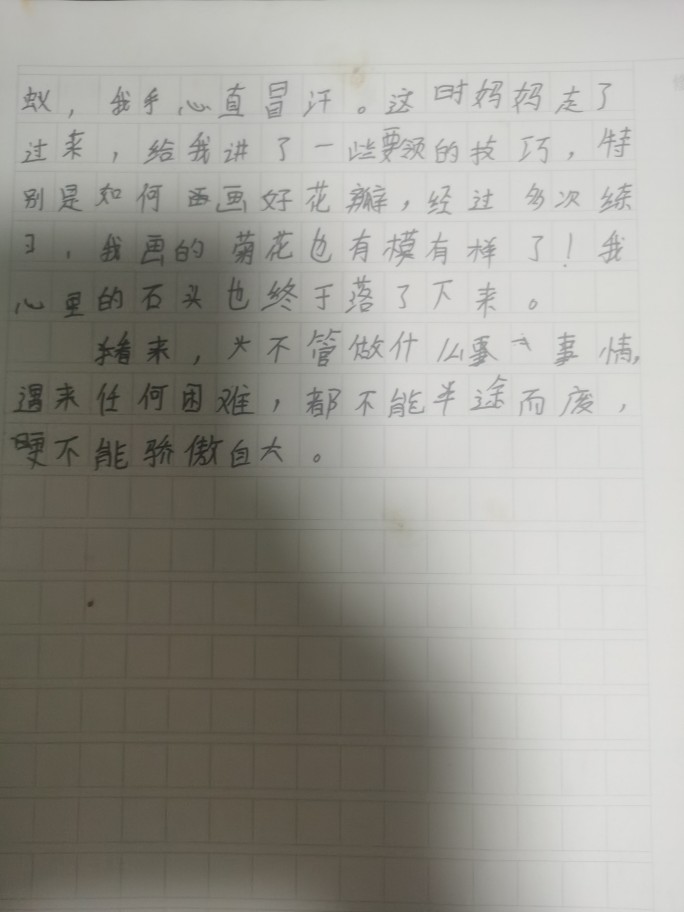 蚁，我手心直冒汗。这时妈妈走了
过来，给我讲了一些要领的技巧，特
别是如何画好花瓣，经过多次练
习，我画的菊花也有模有样了！我
心里的石头也终于落了下来。
来，不管做什么事情，
遇来任何困难，都不能半途而废，
更不能骄傲自大。